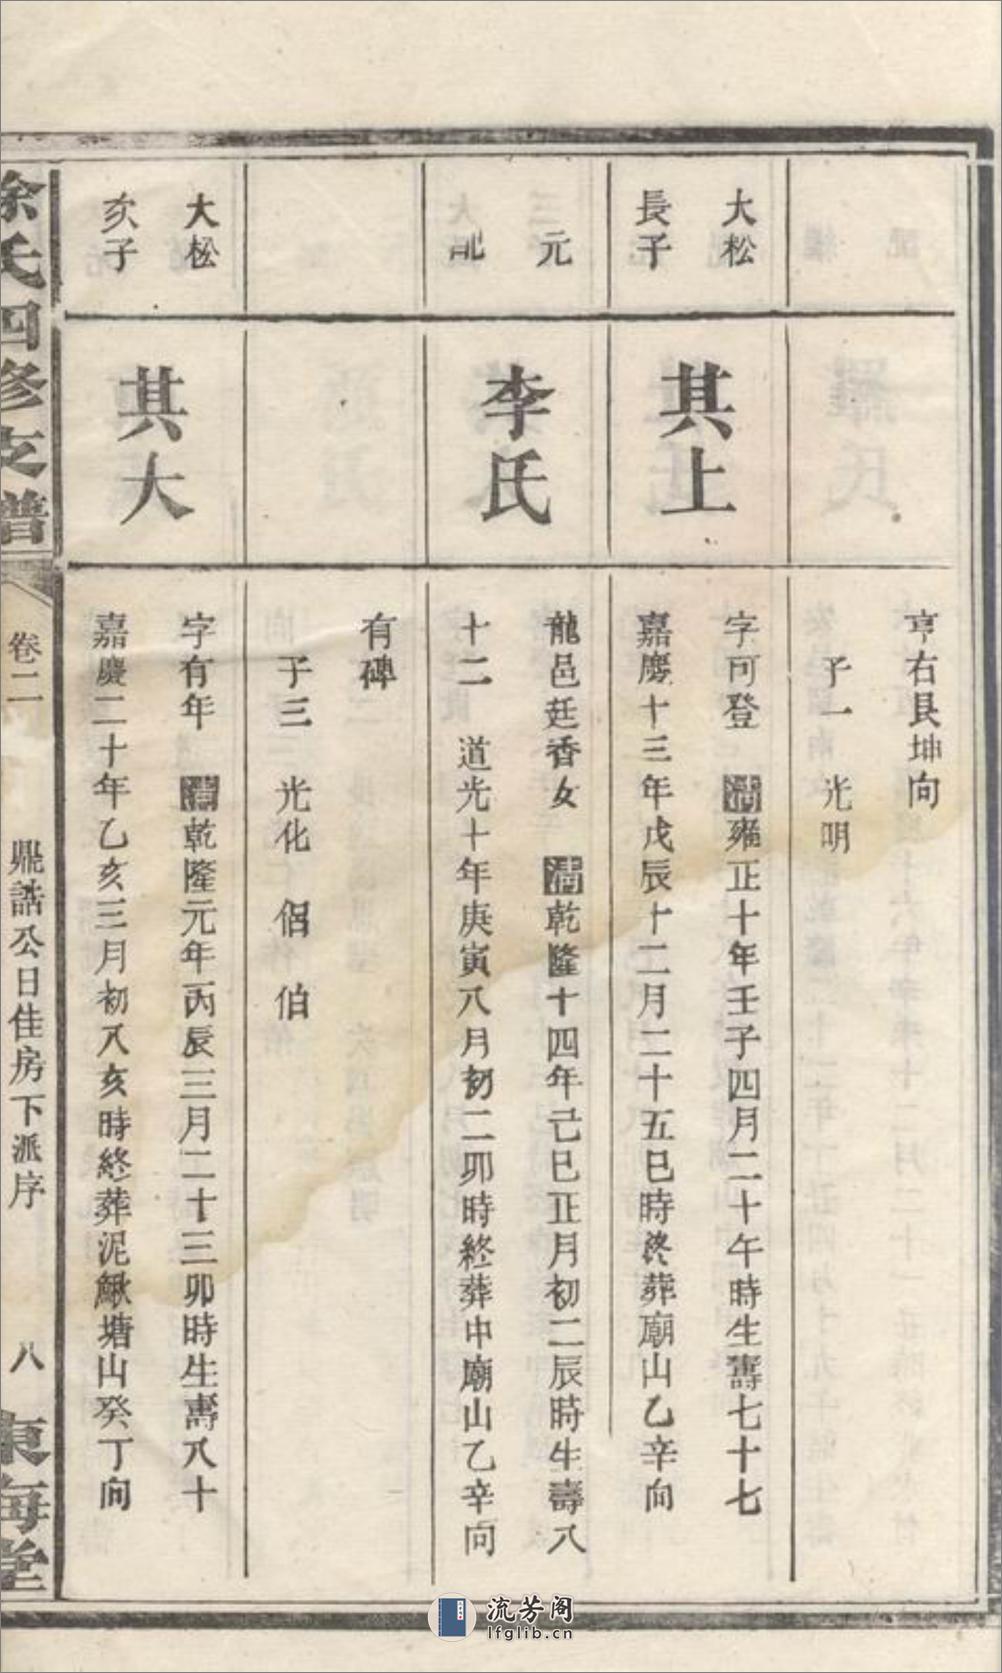 亨右艮坤向
子一　光明
大松
長子
其上
字可登　清雍正十年壬子四月二十午時生壽七十七
嘉慶十三年戊辰十二月二十五巳時終葬廟山乙辛向
元
配
李氏
龍邑廷香女　清乾隆十四年己巳正月初二辰時生壽八
十二　道光十年庚寅八月初二卯時終葬中廟山乙辛向
有碑
子三　光化　侶　伯
大松
次子
其大
字有年　清乾隆元年丙辰三月二十三卯時生壽八十
嘉慶二十年乙亥三月初八亥時終葬泥鰍塘山癸丁向
徐氏四修支譜
卷二
鼎誥公日佳房下派序
八
東海堂
流芳阁
lfglib.cn